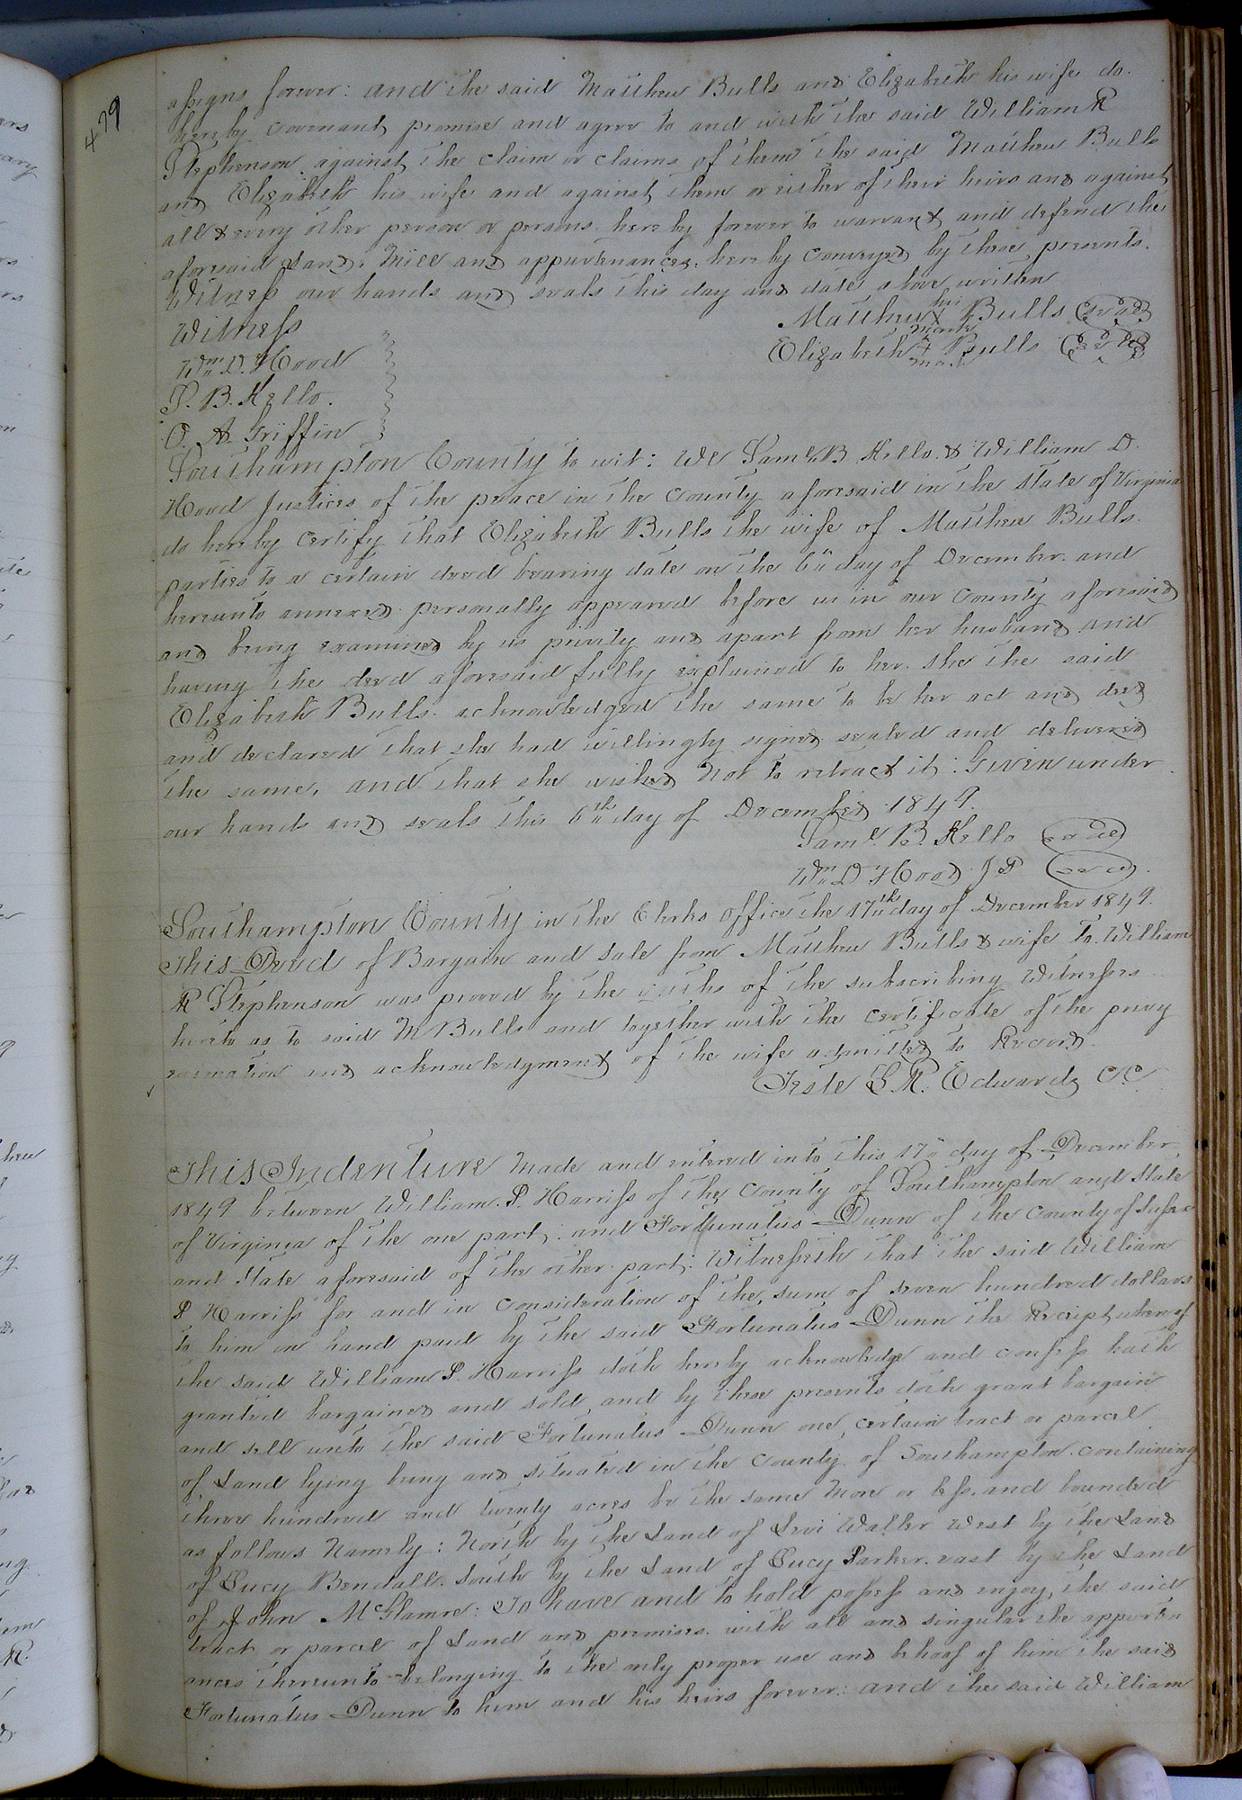 479
assigns forever: and the said Matthew Bulls and Elizabeth his wife do.
hereby covenant, promise and agree to and with the said William R
Stephenson, against the claim or claims of them the said Matthew Bulls
and Elizabeth his wife and against them or either of their heirs and against
all & every other person or persons hereby forever to warrant and defend the
aforesaid Land, Mill and appurtenances, hereby conveyed by these presents.
Witness our hands and seals this day and date above written
Witness
Matthew his X mark Bulls (Seal)
Wm D. Hood
Elizabeth X mark Bulls (Seal)
S. B. Kello.
O. A. Griffin
Southampton County to wit: We Saml. B Kello. & William D.
Hood Justices of the peace in the County aforesaid in the State of Virginia
do hereby certify that Elizabeth Bulls the wife of Matthew Bulls.
parties to a certain deed bearing date on the 6th day of December. and
hereunto annexed personally appeared before us in our County aforesaid
and being examined by us privily and apart from her husband and
having the deed aforesaid fully explained to her. she the said
Elizabeth Bulls. acknowledged the same to be her act and deed
and declared that she had willingly signed sealed and delivered
the same, and that she wished not to retract it: Given under
our hands and seals this 6th day of December 1849.
Saml. B. Kello (Seal)
Wm D Hood J P (Seal)
Southampton County in the Clerks office the 17th day of December 1849.
This Deed of Bargain and Sale from Matthew Bulls & wife To William
R Stephenson was proved by the oaths of the subscribing Witnesses
hereto as to said M Bulls and together with the certificate of the privy
examination and acknowledgment of the wife admitted to Record.
Teste L. R. Edwards CC
This Indenture Made and entered into this 17th day of December
1849 between William. P. Harriss of the County of Southampton and State
of Virginia of the one part; and Fortunatus Dunn of the County of Sussex
and State aforesaid of the other part: Witnesseth that the said William
P Harriss for and in consideration of the, sum of seven hundred dollars
to him in hand paid by the said Fortunatus Dunn the Receipt whereof
the said William P Harriss doth hereby acknowledge and confess hath
granted bargained and sold, and by these presents doth grant bargain
and sell unto the said Fortunatus Dunn one, certain tract or parcel
of Land lying being and situated in the County of Southampton. containing
three hundred and twenty acres be the same more or less. and bounded
as follows Namely: North by the Land of Levi Waller West by the Land
of Lucy Bendall. South by the Land of Lucy Parker. east by the Land
of John McGlamre: To have and to hold possess and enjoy, the said
tract or parcel of Land and premises. with all and singular the apperten
ances thereunto belonging to the only proper use and behoof of him the said
Fortunatus Dunn to him and his heirs forever: and the said William